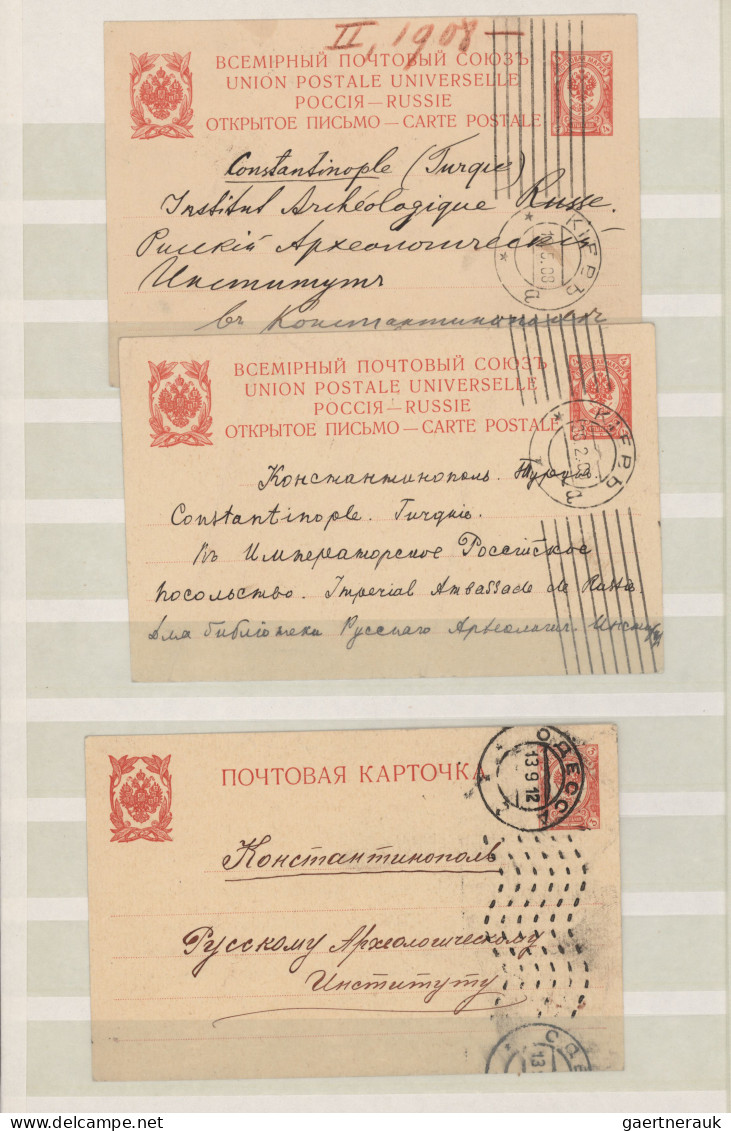 II, 1908 —
ВСЕМІРНЫЙ ПОЧТОВЫЙ СОЮЗЪ
UNION POSTALE UNIVERSELLE
РОССІЯ — RUSSIE
ОТКРЫТОЕ ПИСЬМО — CARTE POSTALE
Constantinople (Turquie)
Institut Archéologique Russe.
Русскій Археологическій
Институтъ
въ Константинополѣ
КІЕВЪ
5.08
а
ВСЕМІРНЫЙ ПОЧТОВЫЙ СОЮЗЪ
UNION POSTALE UNIVERSELLE
РОССІЯ — RUSSIE
ОТКРЫТОЕ ПИСЬМО — CARTE POSTALE
КІЕВЪ
а
Константинополь. Турція.
Constantinople. Turquie.
Въ Императорское Россійское
посольство. Imperial Ambassade de Russie.
Для библіотеки Русскаго Археологич.
ПОЧТОВАЯ КАРТОЧКА
ОДЕССА
13 9 12
Константинополь
Русскому Археологическому
Институту
ОДЕ
13
gaertnerauk